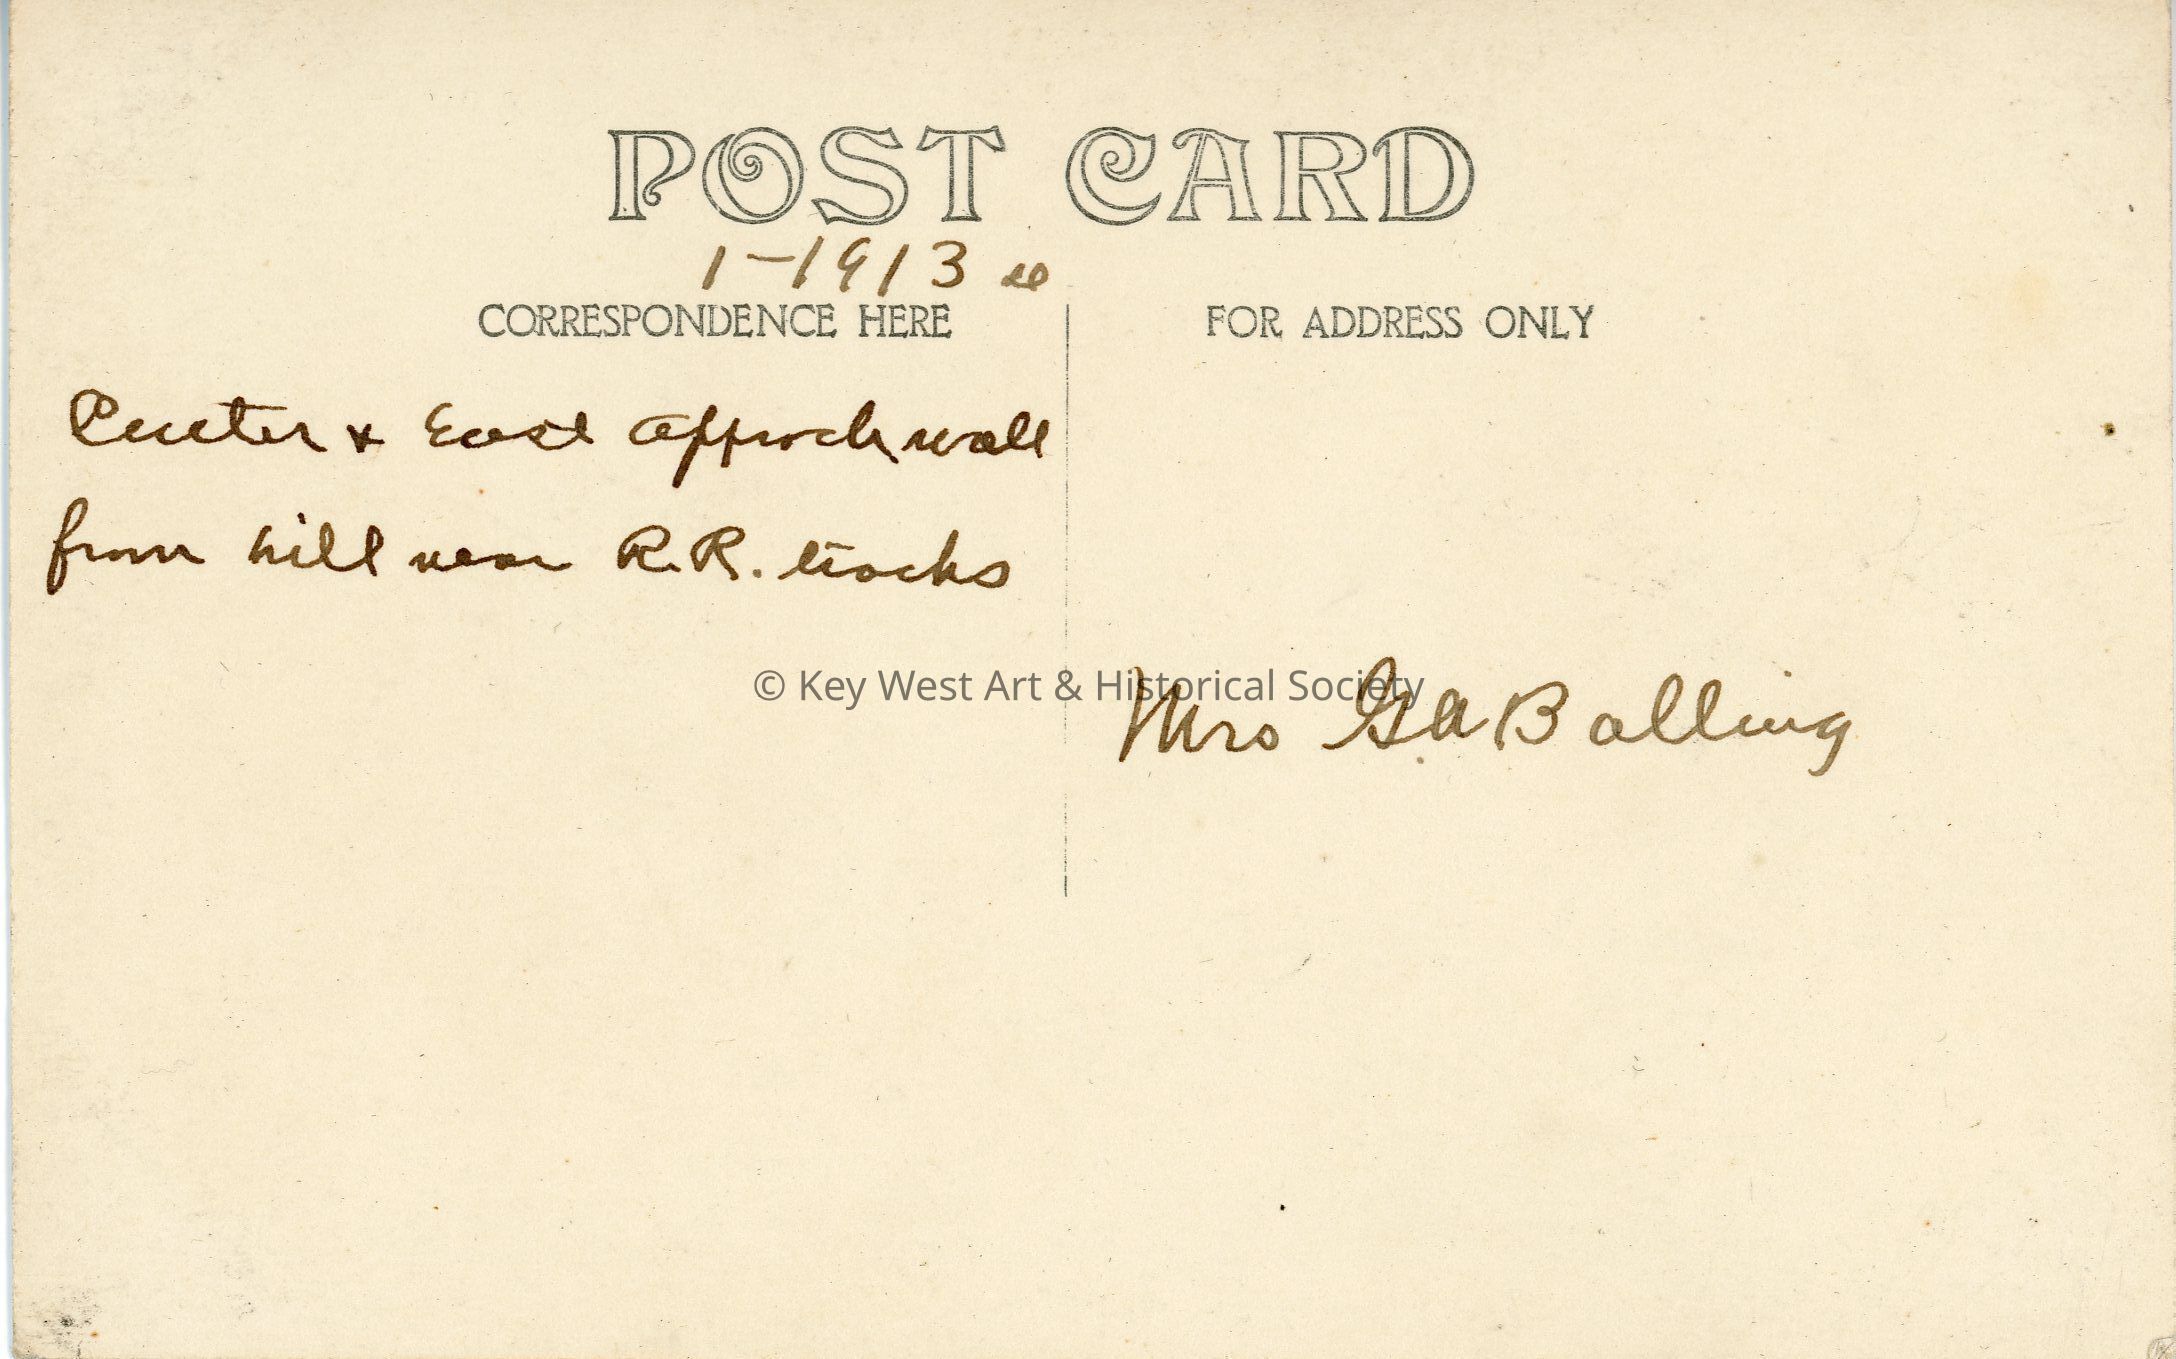 POST CARD
1-1913
CORRESPONDENCE HERE
FOR ADDRESS ONLY
Center & East approch wall
from hill near R.R. tracks
© Key West Art & Historical Society
Mrs GA Bolling